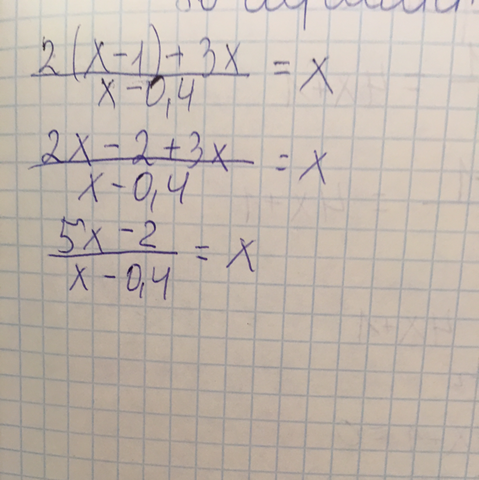 2(x-1)+3x / x-0,4 = x
2x-2+3x / x-0,4 = x
5x-2 / x-0,4 = x